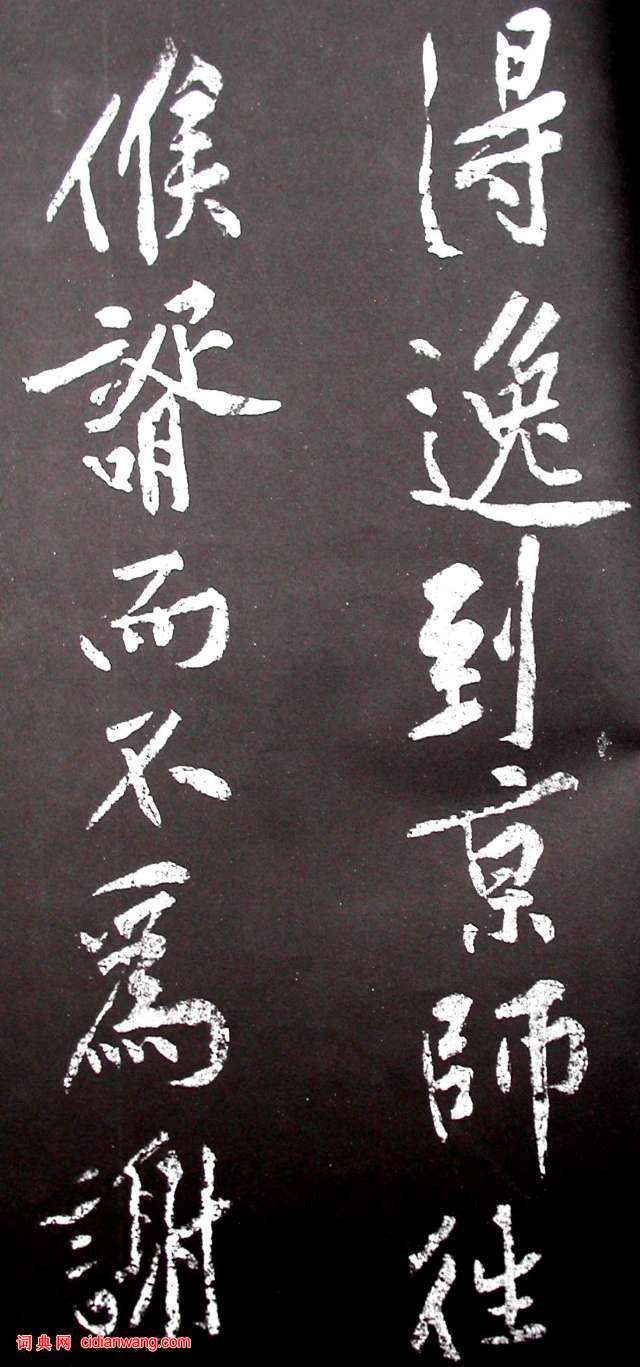 得逸到京師往
候諝而不為謝
词典网 cidianwang.com